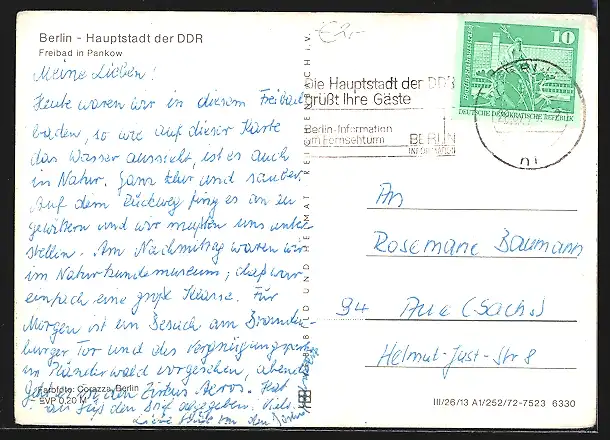 Berlin - Hauptstadt der DDR
Freibad in Pankow
€2,-
Meine Lieben!
Heute waren wir in diesem Freibad
baden, so wie auf dieser Karte
das Wasser aussieht, ist es auch
in Natur. Ganz klar und sauber.
Auf dem Rückweg fing es an zu
gewittern und wir mußten uns unter
stellen. Am Nachmittag waren wir
im Naturkundemuseum, das war
einfach eine große Klasse. Für
Morgen ist ein Besuch am Branden-
burger Tor und des Vergnügungspark
im Plänterwald vorgesehen, abends
den Zirkus Aeros. Hat
den abgegeben. Viele
Liebe Grüße von den
Farbfoto: Corazza, Berlin
EVP 0,20 M
BILD UND HEIMAT REICHENBACH I. V.
Die Hauptstadt der DDR
grüßt Ihre Gäste
Berlin-Information
am Fernsehturm
BERLIN
INFORMATION
BERLIN
10
DEUTSCHE DEMOKRATISCHE REPUBLIK
An
Rosemarie Baumann
94 Aue (Sachs.)
Helmut-Just-Str 8
III/26/13 A1/252/72-7523 6330